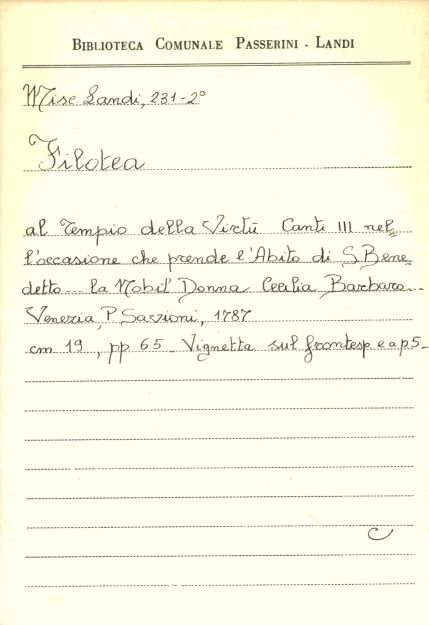 BIBLIOTECA COMUNALE PASSERINI - LANDI
Misc Landi, 231-2°
Filotea
al Tempio della Virtù Canti III nel=
l'occasione che prende l'Abito di S. Bene=
detto... la Nobil Donna Cecilia Barbaro...
Venezia, P. Savioni, 1787
cm 19, pp 65. Vignetta sul frontesp. e a p 5-
C